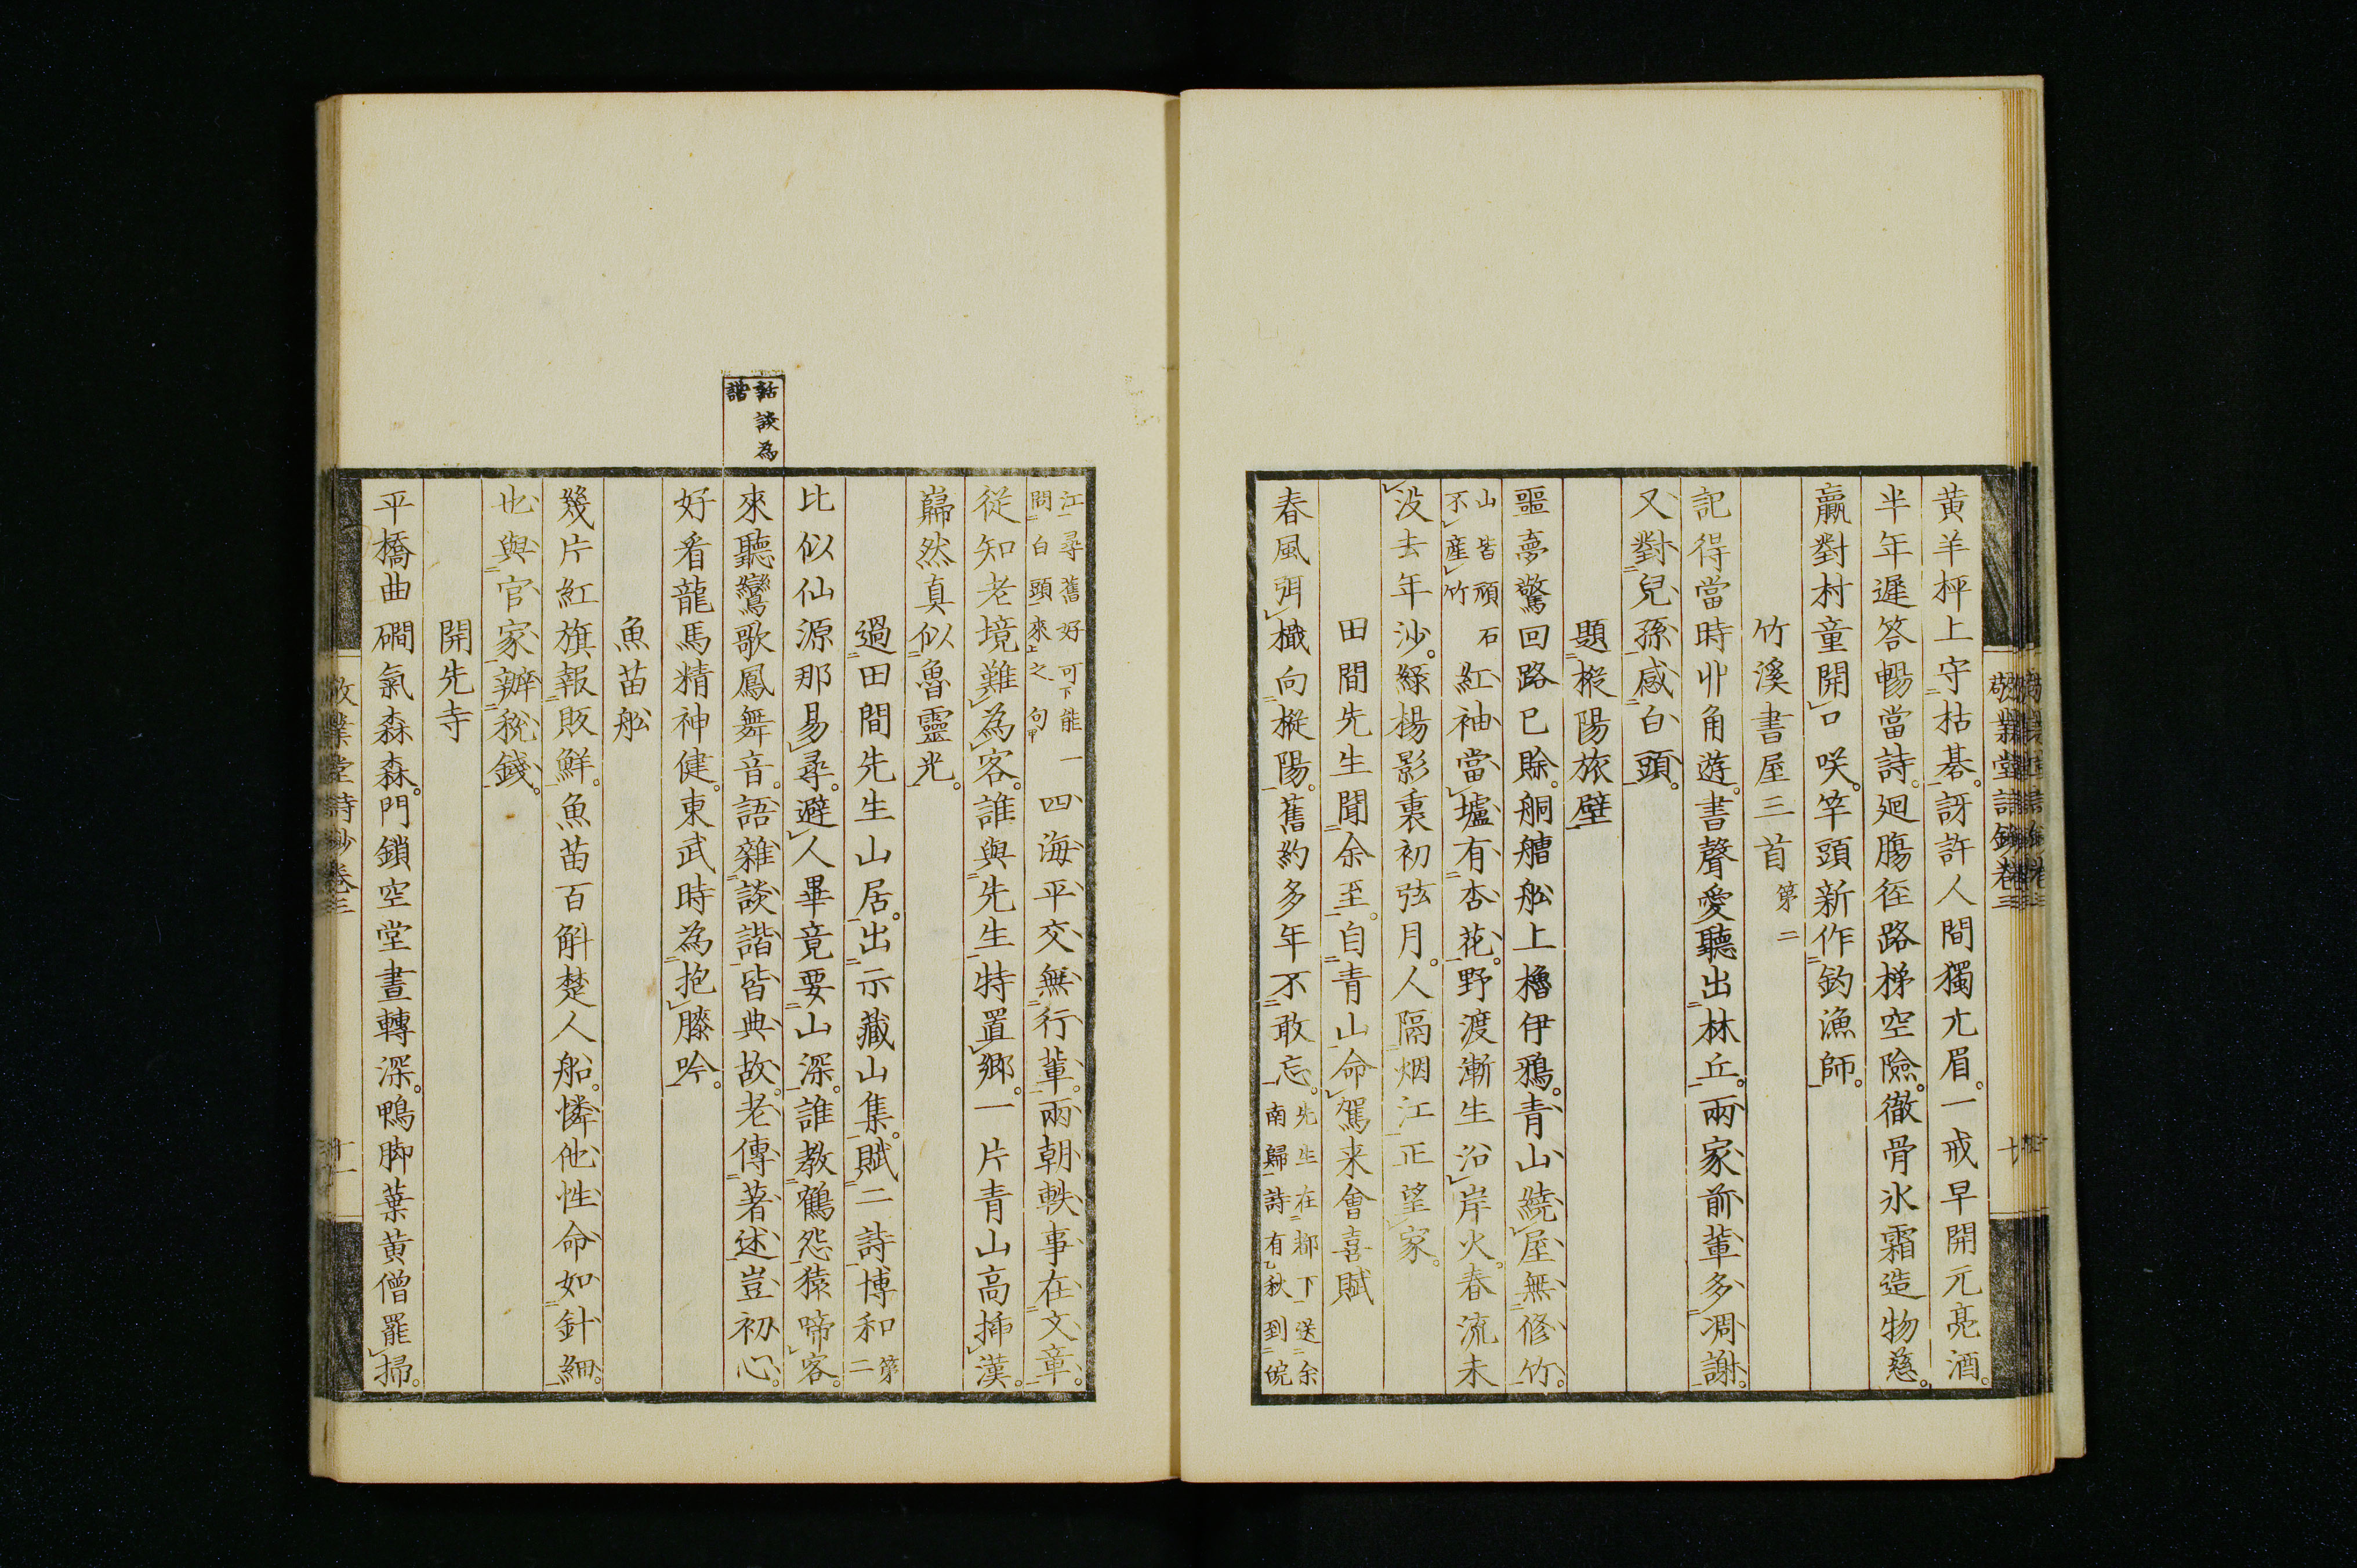 黄羊枰上守枯碁訝許人間獨尢眉一戒早開元亮酒
半年遲答暢當詩廻膓徑路梯空險徹骨氷霜造物慈
贏對村童開口咲竿頭新作釣漁師
竹溪書屋三首第二
記得當時丱角遊書聲愛聽出林丘兩家前輩多凋謝
又對兒孫感白頭
題樅陽旅壁
噩夢驚回路已賖舸艚舩上櫓伊鴉青山繞屋無修竹
山皆頑石
不產竹
紅袖當壚有杏花野渡漸生沿岸火春流未
没去年沙綠楊影裏初弦月人隔烟江正望家
田間先生聞余至自青山命駕来會喜賦
春風弭檝向樅陽舊約多年不敢忘
先生在都下送余
南歸詩有秋到皖
敬業堂詩鈔卷三
江尋舊好可能
問白頭來之句
四海平交無行輩兩朝軼事在文章
從知老境難為客誰與先生特置鄉一片青山高揷漢
巋然真似魯靈光
過田間先生山居出示藏山集賦二詩博和第二
比似仙源那易尋避人畢竟要山深誰教鶴怨猿啼客
來聽鸞歌鳳舞音語雜談諧皆典故老傳著述豈初心
話談為
諧
好看龍馬精神健東武時為抱膝吟
魚苗舩
幾片紅旗報販鮮魚苗百斛楚人船憐他性命如針細
也與官家辦稅錢
開先寺
平橋曲磵氣森森門鎖空堂晝轉深鴨脚葉黃僧罷掃
敬業堂詩鈔卷三
十一